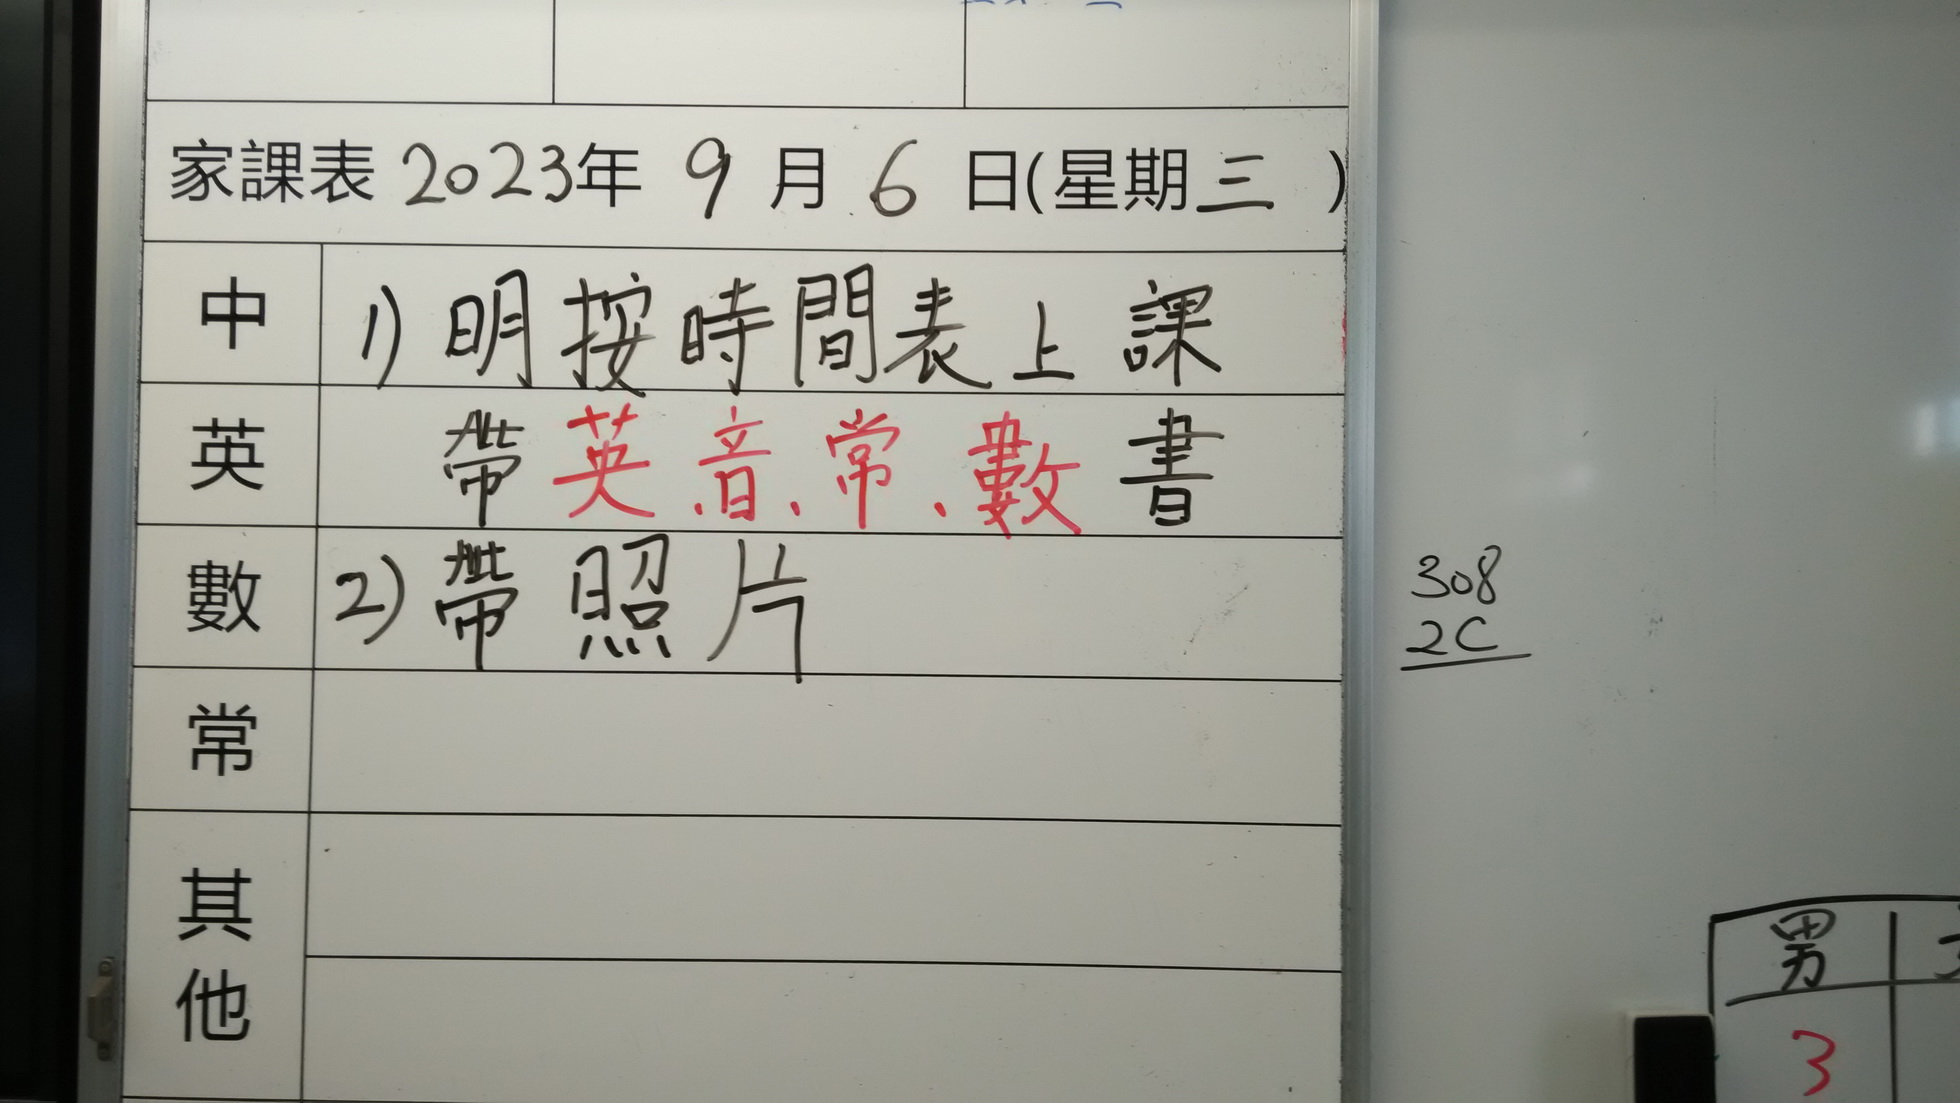 家課表 2023年 9 月 6 日(星期三 )
中 1) 明按時間表上課
英 帶英、音、常、數書
數 2) 帶照片
常
其他
308
2C
男
3